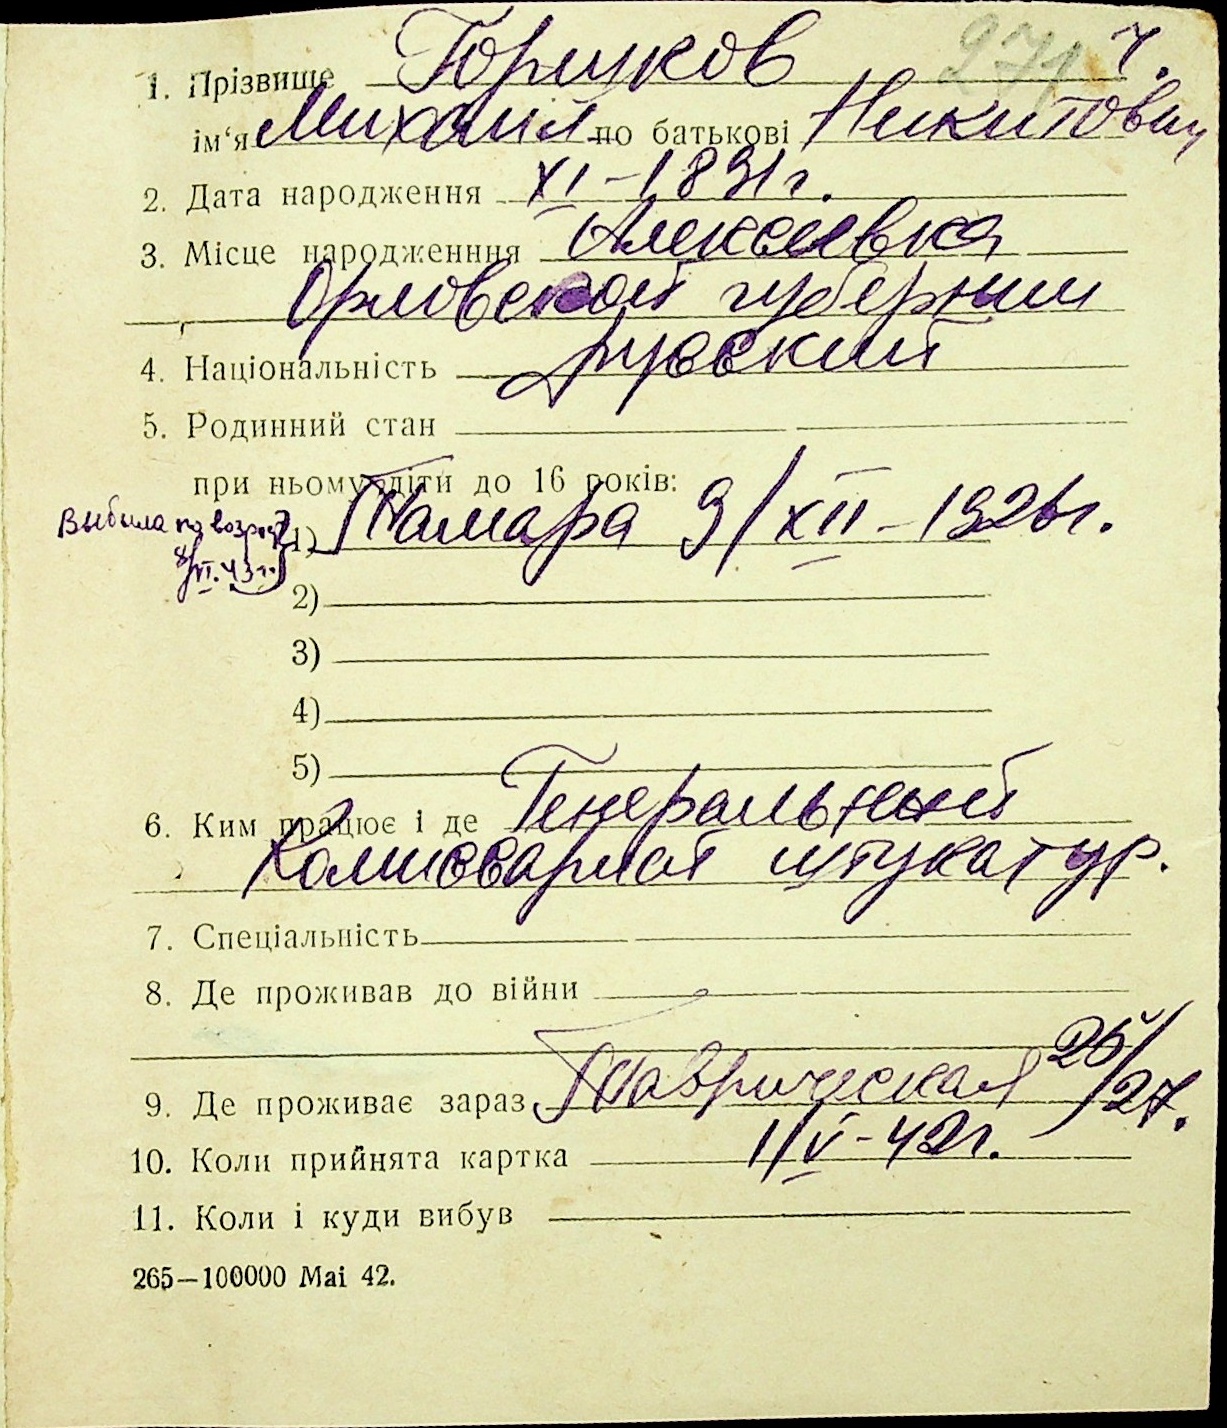 271 ч.
1. Прізвище Горшков
ім‘я Михаил по батькові Никитович
2. Дата народження XI – 1891 г.
3. Місце народженння Алексеевка
Орловской губернии
4. Національність русский
5. Родинний стан
при ньому діти до 16 років:
Выбыла по возрасту
8/VI.43 г.
1) Тамара 9/XII – 1926 г.
2)
3)
4)
5)
6. Ким працює і де Генеральный
Комиссариат штукатур.
7. Спеціальність
8. Де проживав до війни
9. Де проживає зараз Таврическая 25/27.
10. Коли прийнята картка 1/V – 42 г.
11. Коли і куди вибув
265—100000 Mai 42.